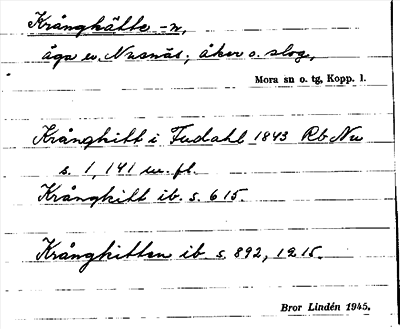 Krånghätte -n,
äga ev. Nusnäs; åker o. slog,
Mora sn o. tg, Kopp. l.
Krånghitt i Fudahl 1843 Rb Nu
s. 1, 141 m. fl.
Krånghitt ib. s. 615.
Krånghitten ib. s. 892, 1215.
Bror Lindén 1945.